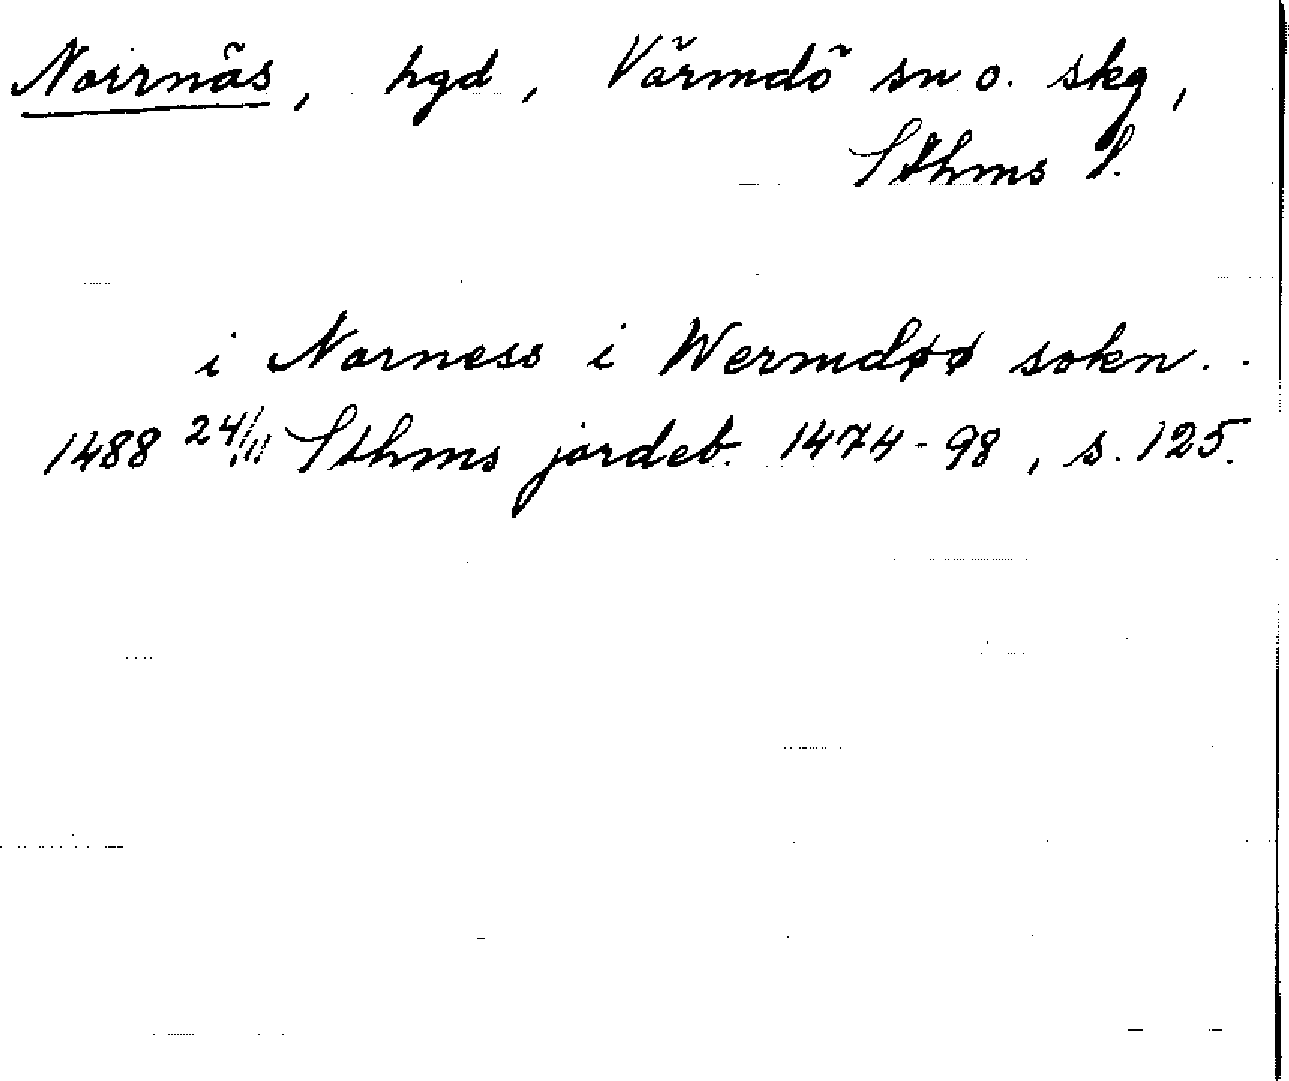 Norrnäs, hgd, Värmdö sn o. skg,
Sthms l.
i Norness i Wermdøø sokn. .
1488 24/11 Sthms jordeb. 1474-98, s. 125.